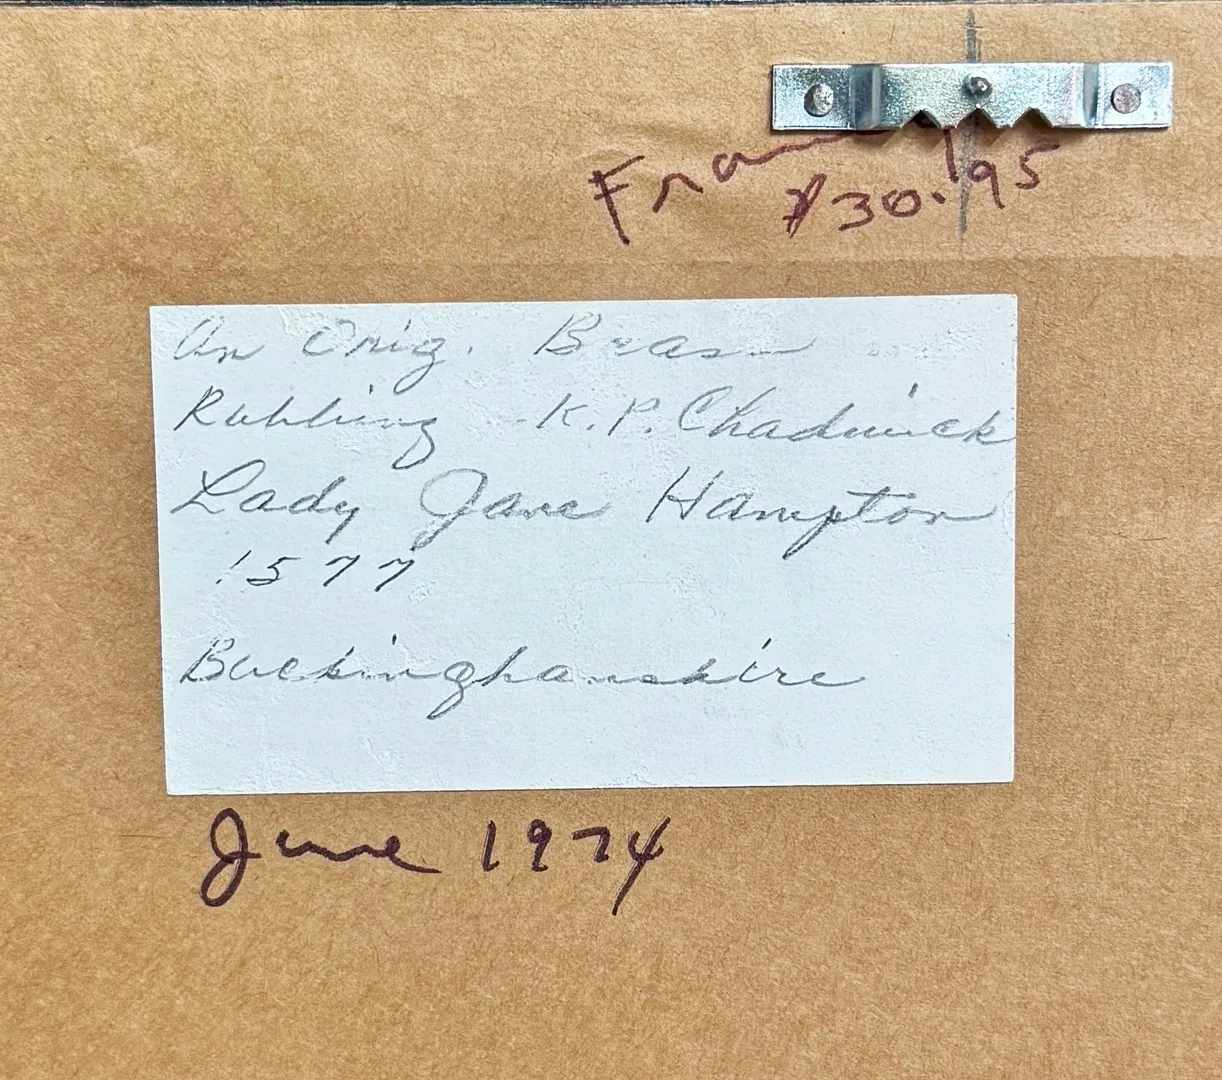 Fram
$30.95
An Orig. Brass
Rubbing K.P. Chadwick
Lady Jane Hampton
1577
Buckinghamshire
June 1974